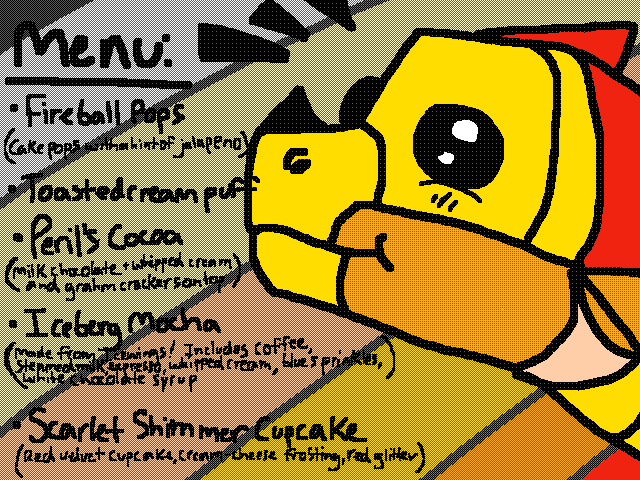 Menu:
• Fireball Pops
(Cake pops with a hint of jalapeno)
• Toasted cream puff
• Peril's Cocoa
(milk chocolate + whipped cream
and grahm crackers on top)
• Iceberg Mocha
(made from Icewings! Includes coffee,
Steamed milk, espresso, whipped cream, blue sprinkles,
white chocolate syrup
• Scarlet Shimmer Cupcake
(Red velvet cupcake, cream-cheese frosting, red glitter)